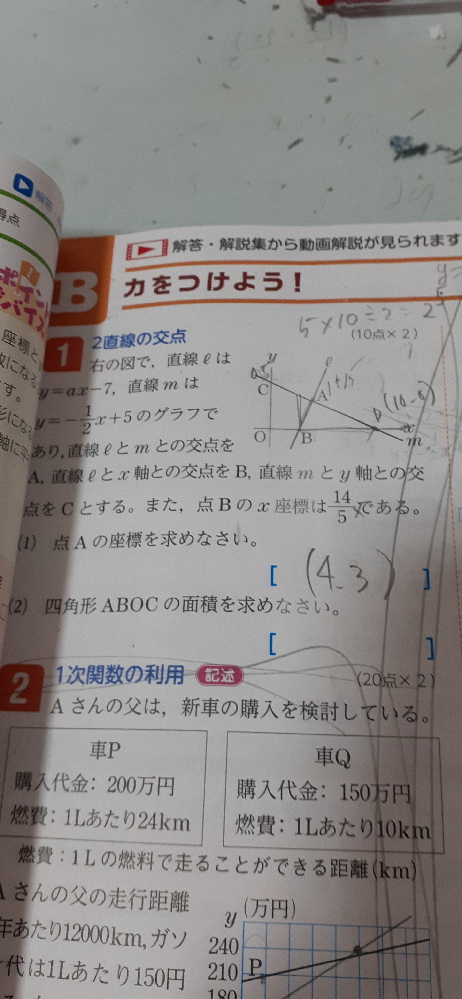 解答・解説集から動画解説が見られます
B 力をつけよう!
1 2直線の交点
(10点×2)
右の図で，直線ℓは
y=ax−7，直線mは
y=−1/2x+5のグラフで
あり，直線ℓとmとの交点を
A，直線ℓとx軸との交点をB，直線mとy軸との交
点をCとする。また，点Bのx座標は14/5である。
(1) 点Aの座標を求めなさい。
[ (4-3) ]
(2) 四角形ABOCの面積を求めなさい。
[ ]
5×10÷2=2
y
ℓ
C
A
O
B
x
m
2 1次関数の利用 記述
(20点×2)
Aさんの父は，新車の購入を検討している。
車P
購入代金：200万円
燃費：1Lあたり24km
車Q
購入代金：150万円
燃費：1Lあたり10km
燃費：1Lの燃料で走ることができる距離(km)
Aさんの父の走行距離
年あたり12000km，ガソ
代は1Lあたり150円
y (万円)
240
210 P
180